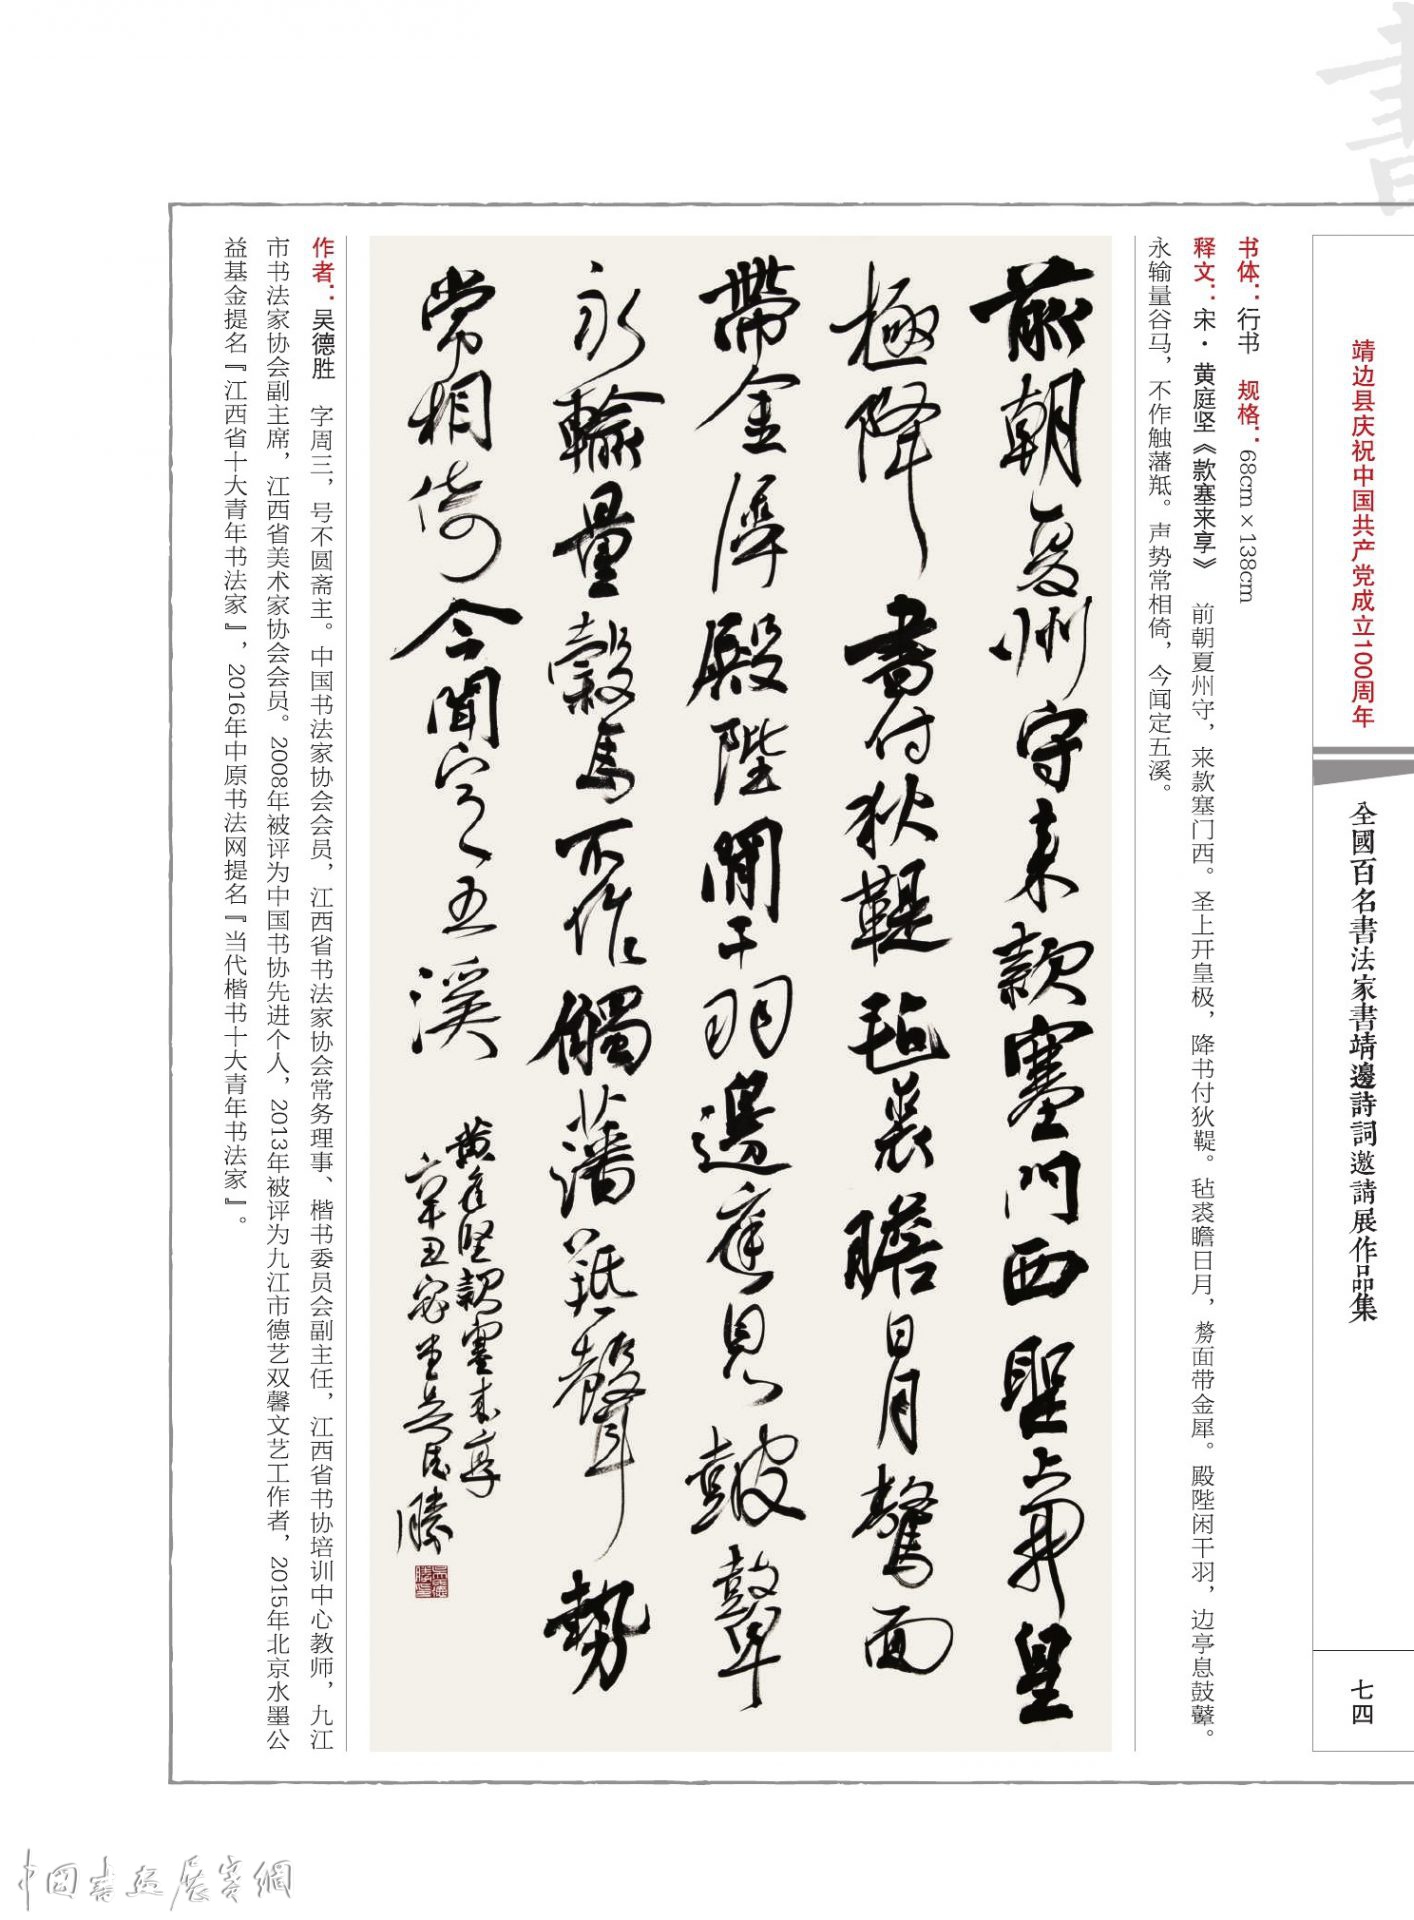 書
靖边县庆祝中国共产党成立100周年
全國百名書法家書靖邊詩詞邀請展作品集
七四
书体：行书　规格：68cm×138cm
释文：宋·黄庭坚《款塞来享》　前朝夏州守，来款塞门西。圣上开皇极，降书付狄鞮。毡裘瞻日月，剺面带金犀。殿陛闲干羽，边亭息鼓鼙。
永输量谷马，不作触藩羝。声势常相倚，今闻定五溪。
前朝夏州守来款塞門西聖上開皇
極降書付狄鞮毡裘瞻日月面
帶金犀殿陛閒干羽邊庭息鼓鼙
永輸量穀馬不作觸藩羝聲勢
常相倚今聞定五溪
黄庭堅款塞来享
辛丑吴德勝
作者：吴德胜　字周三，号不圆斋主。中国书法家协会会员，江西省书法家协会常务理事、楷书委员会副主任，江西省书协培训中心教师，九江
市书法家协会副主席，江西省美术家协会会员。2008年被评为中国书协先进个人，2013年被评为九江市德艺双馨文艺工作者，2015年北京水墨公
益基金提名『江西省十大青年书法家』，2016年中原书法网提名『当代楷书十大青年书法家』。
中國書畫展賽網